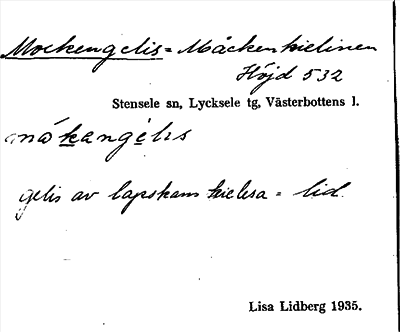 Mockengelis = Måckenkielinen
Höjd 532
Stensele sn, Lycksele tg, Västerbottens l.
måkangèlis
gelis av lapskans kielesa = lid.
Lisa Lidberg 1935.